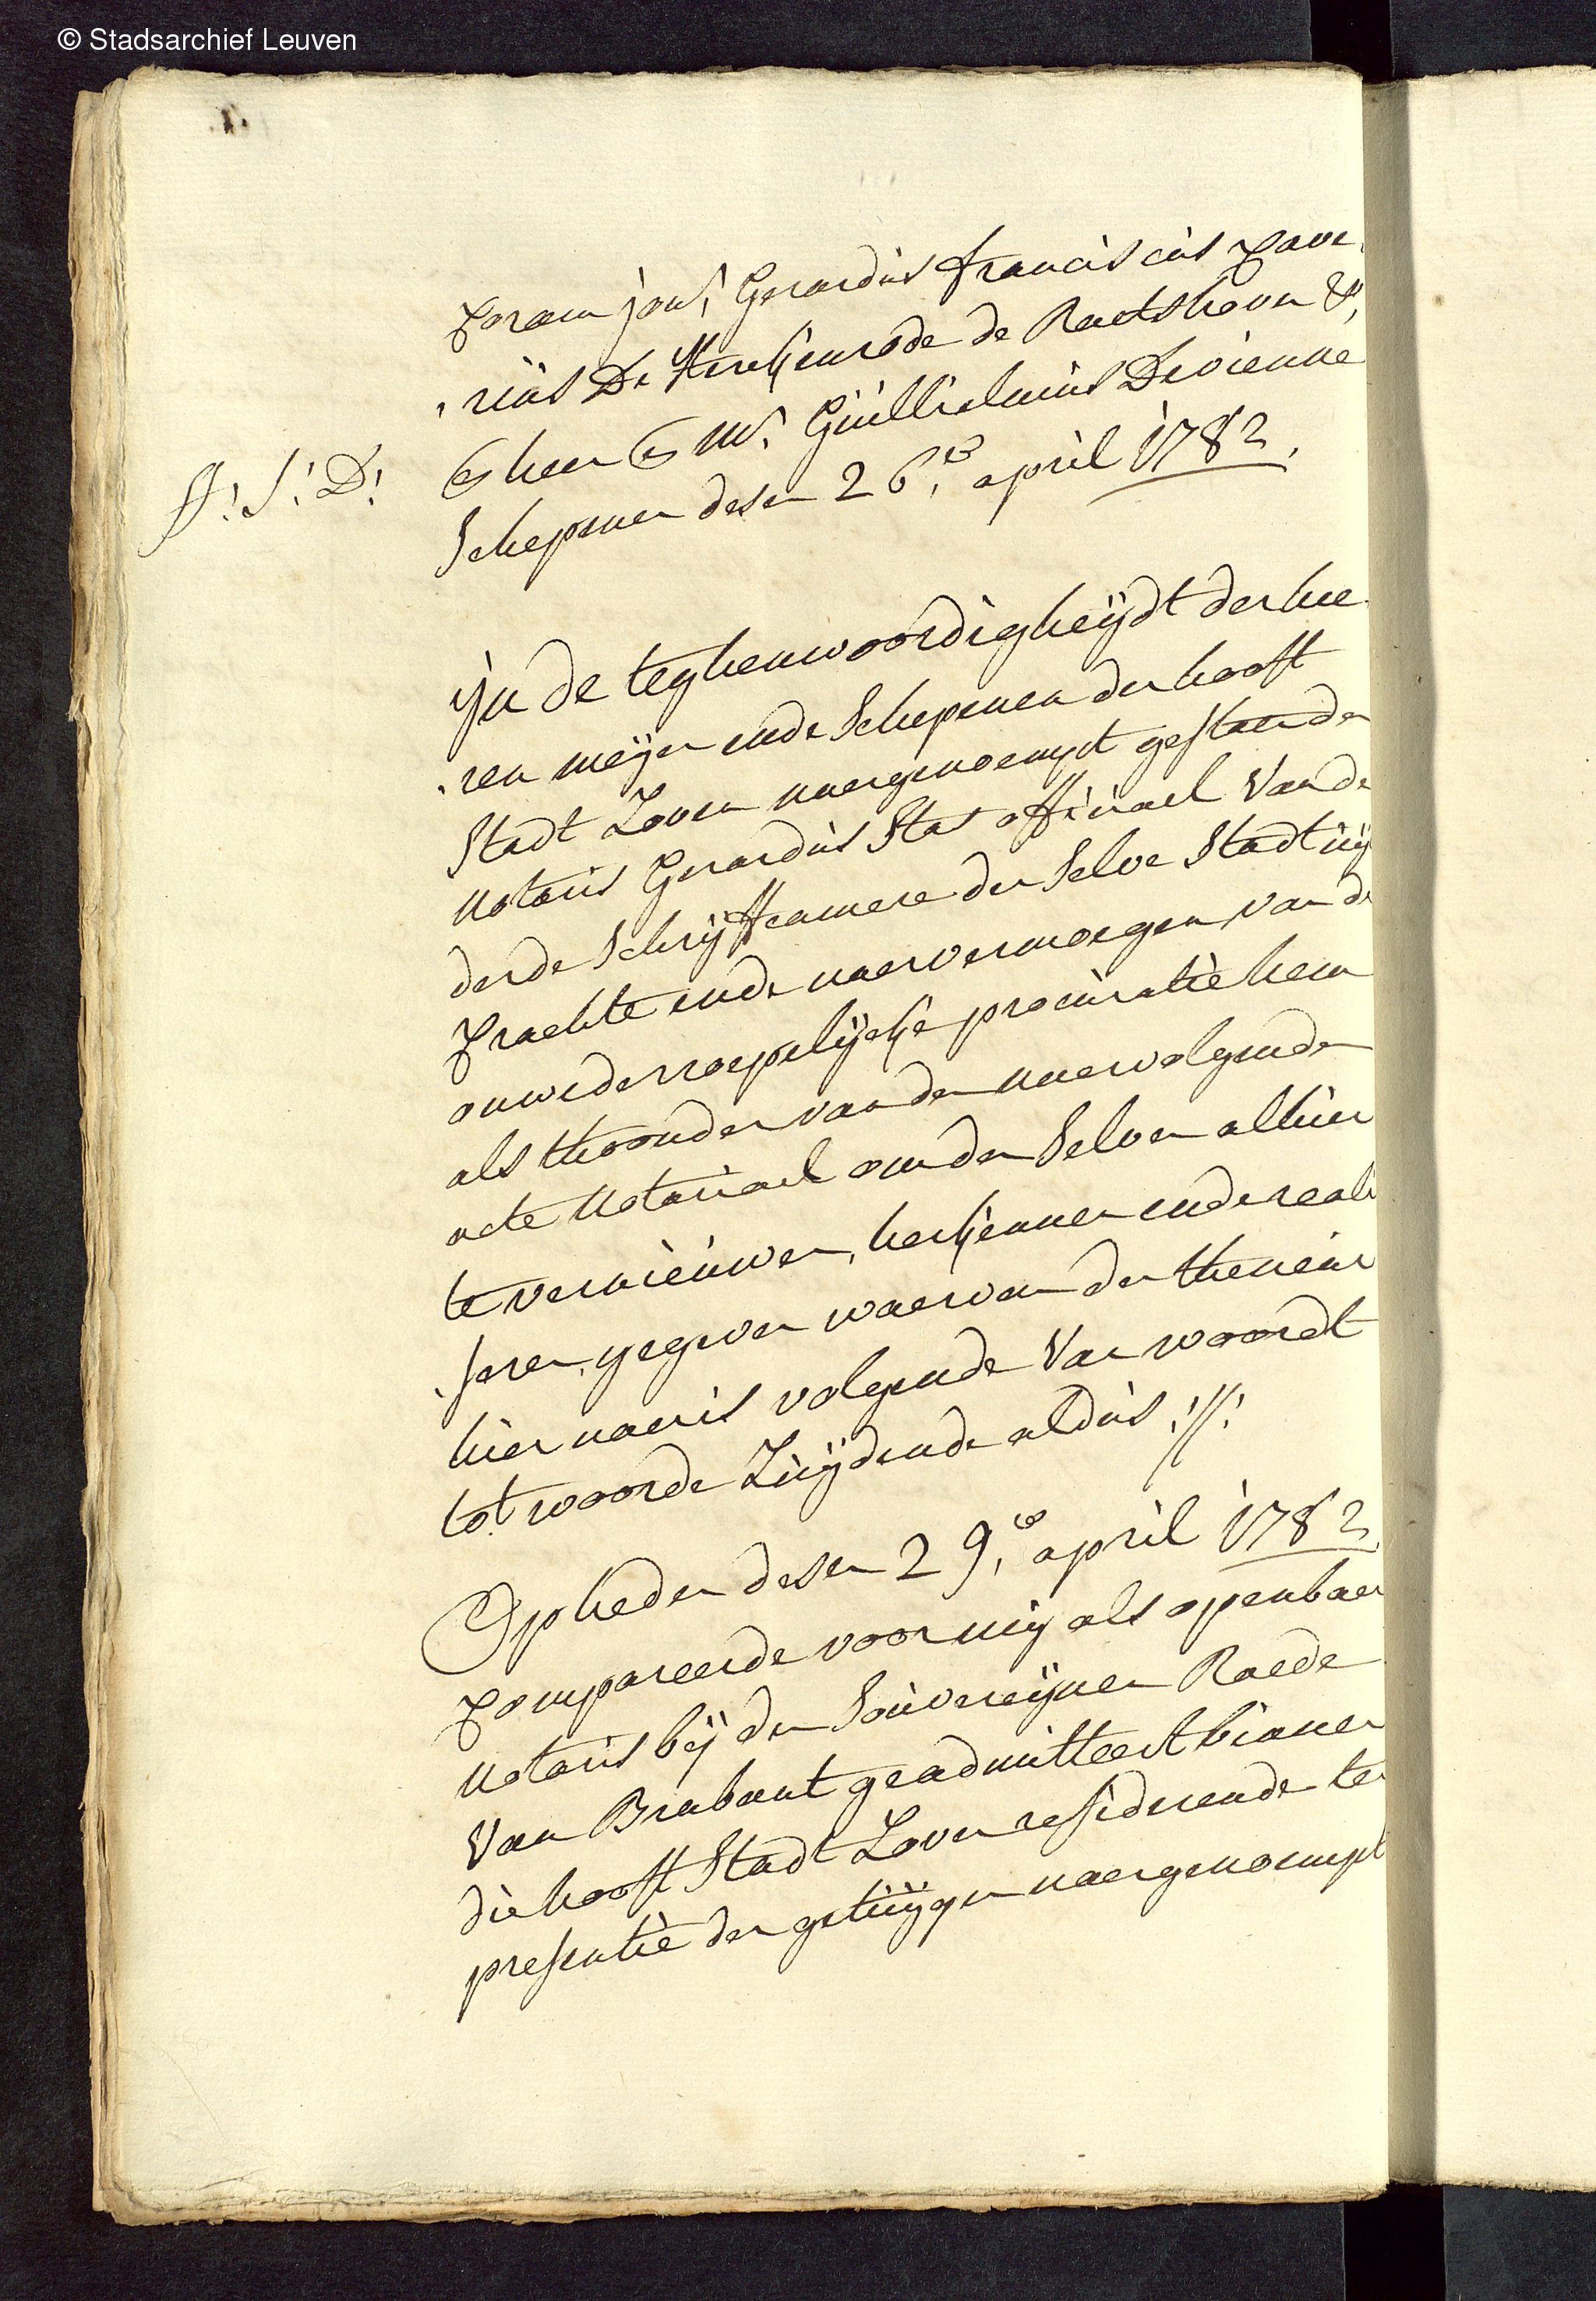 © Stadsarchief Leuven
Coram jon.r Gerardus Franciscus Xave„
„rius De Herckenrode de Raetshoven &.
S.t S.t D.t
&heer & M.r Guillielmus Devienne
Schepenen desen 26.e april 1782.
ijn de teghenwoordigheijdt der hee„
„ren meijer ende Schepenen der hooft
Stadt Loven naergenoempt gestaen den
Notaris Gerardus Stas officiael Vande
derde Schrijffcamere der Selve Stadt uijt
Crachte ende naervermoegen van de
onwederroepelijcke procuratie hem
als thoonder van den naervolgende
acte Notariael om den Selven alhier
te vernieuwen, herkennen ende reali„
„seren, gegeven waervan den theneur
hier naer is volgende Van woordt
tot woorde Luijdende aldus ://:
Op heden desen 29.e april 1782
Compareerde voor mij als openbaer
Notaris bij den Souvereijnen Raede
Van Brabant geadmitteert binnen
die hooft Stadt Loven residerende ter
presentie der getuijgen naergenoempt